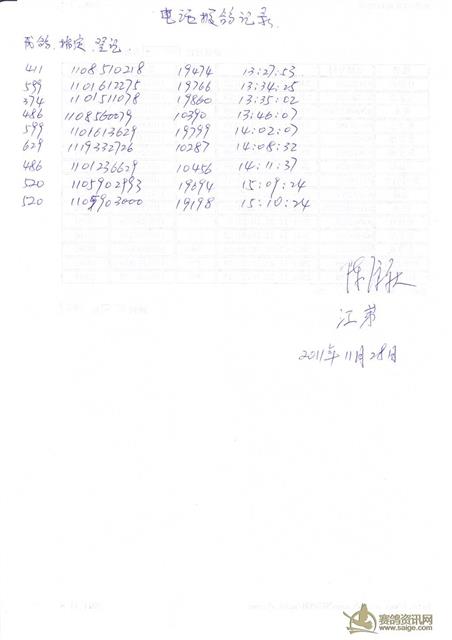 电话报鸽记录.
成鸽 指定 登记.
411 1108510218 19474 13:27:53
599 1101612275 19766 13:34:25
374 1101511078 19860 13:35:02
486 1108560079 10390 13:46:07
599 1101613629 19799 14:02:07
629 1119332726 10287 14:08:32
486 1101236629 10456 14:11:37
520 1105902993 19694 15:09:24
520 1105903000 19198 15:10:24
江弟
2011年11月28日
赛鸽资讯网
www.saige.com